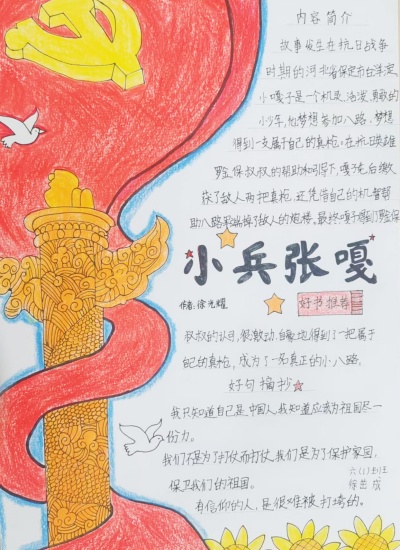 内容简介
故事发生在抗日战争
时期的河北省保定市白洋淀
小嘎子是一个机灵、活泼、勇敢的
小少年,他梦想参加八路,梦想
得到一支属于自己的真枪。在抗日英雄
罗金保叔叔的帮助和引导下,嘎子先后缴
获了敌人两把真枪,还凭借自己的机智帮
助八路军端掉了敌人的炮楼。最终嘎子得到罗金保
小兵张嘎
作者:徐光耀
好书推荐
叔叔的认可,很激动、自豪地得到了一把属于
自己的真枪,成为了一名真正的小八路。
好句摘抄
我只知道自己是中国人,我知道应该为祖国尽一
份力。
我们不是为了打仗而打仗,我们是为了保护家园,
保卫我们的祖国。
有信仰的人,是很难被打垮的。
六(1)班